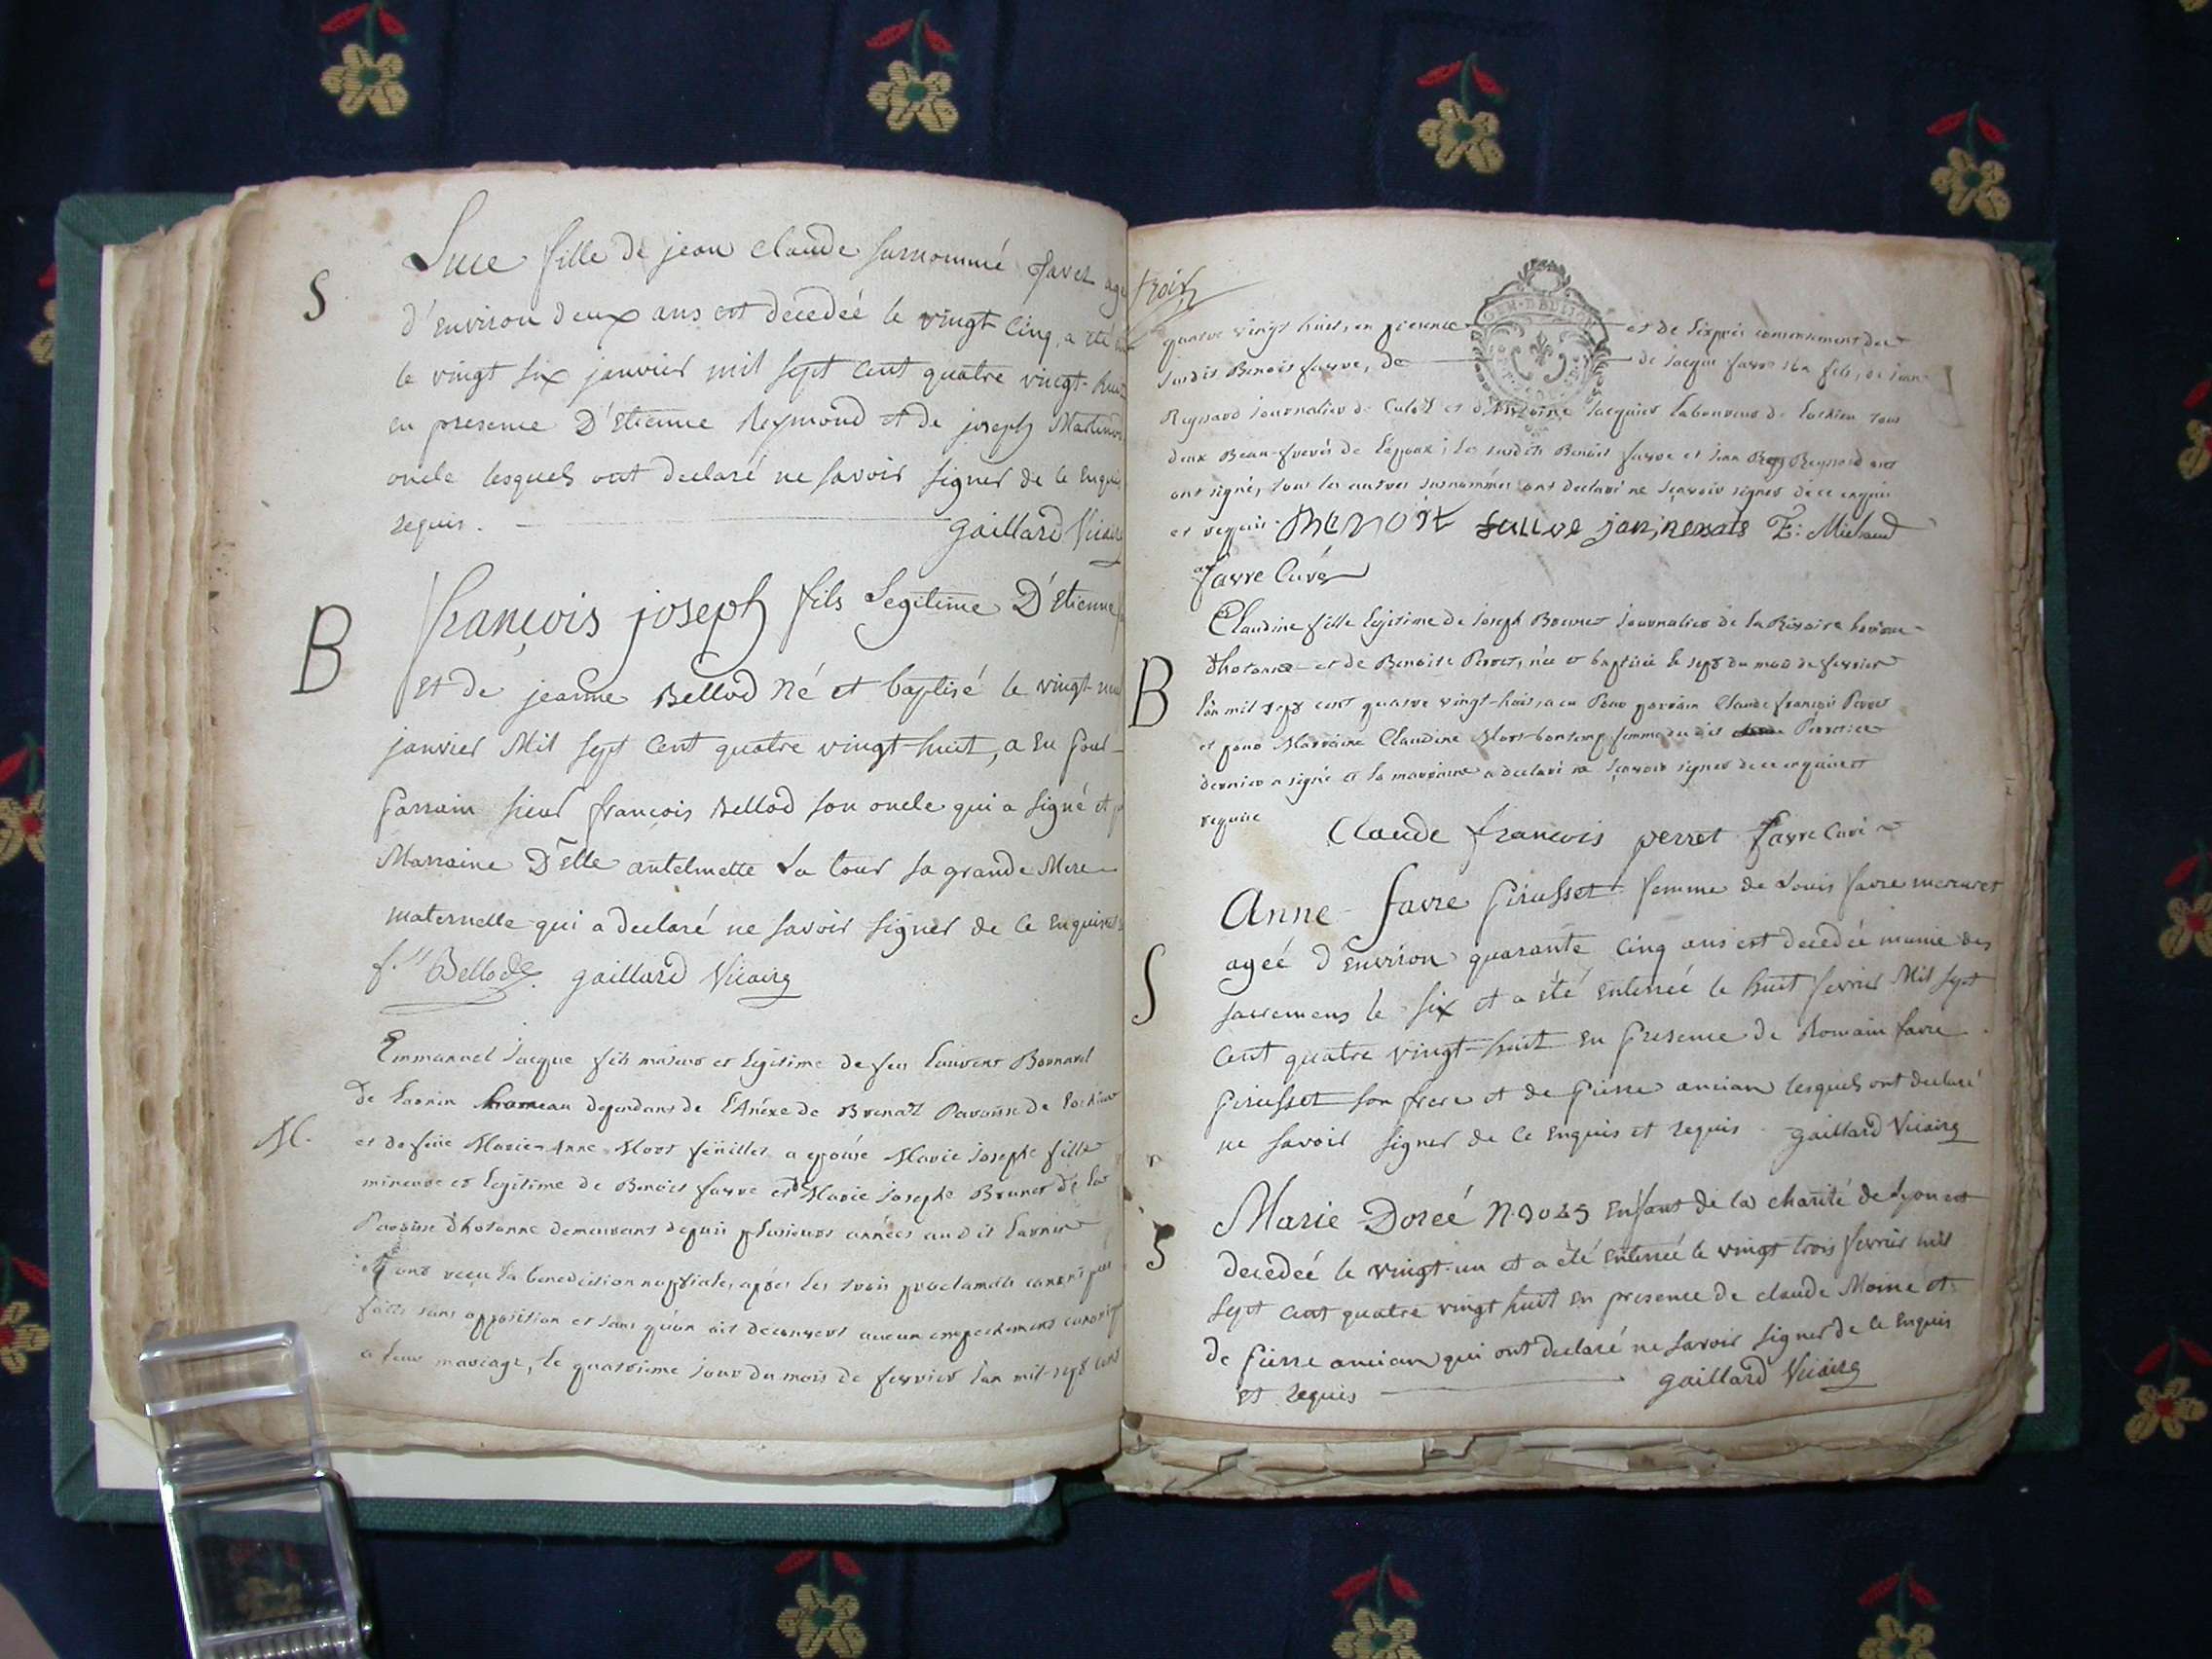 S
Luce fille de jean claude surnommé favet agé
d'environ deux ans est decedeé le vingt-cinq, a eté
le vingt six janvier mil sept cent quatre vingt-huit
en presence D'Etienne Reymond et de joseph
oncle lesquels ont declaré ne savoir signer de ce enquis
requis. gaillard Vicaire
B
françois joseph fils Legitime D'Etienne
et de jeanne Bellod né et baptisé le vingt-
janvier Mil sept cent quatre vingt-huit, a eu pour
parrain sieur françois Bellod son oncle qui a signé et
Marraine Delle antelmette La tour sa grande Mere
maternelle qui a declaré ne savoir signer de ce enquise
f. Bellod gaillard Vicaire
M.
Emmanuel Jacque fils majeur et legitime de feu Laurent Bonnard
de Lavrin hameau dependant de l'Anéxe de Brenaz Paroisse de Lochieu
et de feüe Marie-Anne Mort feüillet a epousé Marie Josephe fille
mineure et legitime de Benoit favre et de Marie Josephe Brunet de la
Paroisse d'hotonne demeurant depuis plusieurs années au dit Lavrin
et ont reçu la benediction nuptiale, apres les trois proclamats
faits sans opposition et sans qu'on ait decouvert aucun empechement
a leur mariage, le quatrieme jour du mois de fevrier l'an mil-sept cent
trois
quatre vingt huit, en presence et de l'exprés consentement du
susdit Benoit favre, de de Jacque favre son fils, de Jean
Reynaud journalier de Culoz et d'Antoine Jacquier Laboureur de Lochieu tous
deux Beau-freres de l'epoux; les susdits Benoit favre et Jean Reynaud
ont signé, tous les autres surnommés ont declaré ne sçavoir signer de ce enquis
et requis. BENOIT E: Michaud
favre Curé
B
Claudine fille legitime de Joseph Brunet journalier de la Rivoire
d'hotonne et de Benoite Perret, née et baptisée le sept du mois de fevrier
l'an mil sept cent quatre vingt-huit, a eu Pour parrain Claude françois Perret
et pour Marraine Claudine Mort-bontemp femme du dit Perret ce
dernier a signé et la marraine a declaré ne sçavoir signer de ce enquise et
requise Claude francois perret favre Curé
S
Anne favre Girusset femme de Louis favre mercuret
ageé d'environ quarante cinq ans est decedeé munie des
sacremens le six et a été enterreé le huit fevrier Mil sept
cent quatre vingt-huit en presence de Romain favre
Girusset son frere et de Pierre ancian lesquels ont declaré
ne savoir signer de ce enquis et requis. gaillard Vicaire
S
Marie Doreé N. 9025 enfant de la charité de lyon est
decedeé le vingt-un et a été enterreé le vingt trois fevrier mil
sept cent quatre vingt huit en presence de claude Moine et
de Pierre ancian qui ont declaré ne savoir signer de ce enquis
et requis gaillard Vicaire